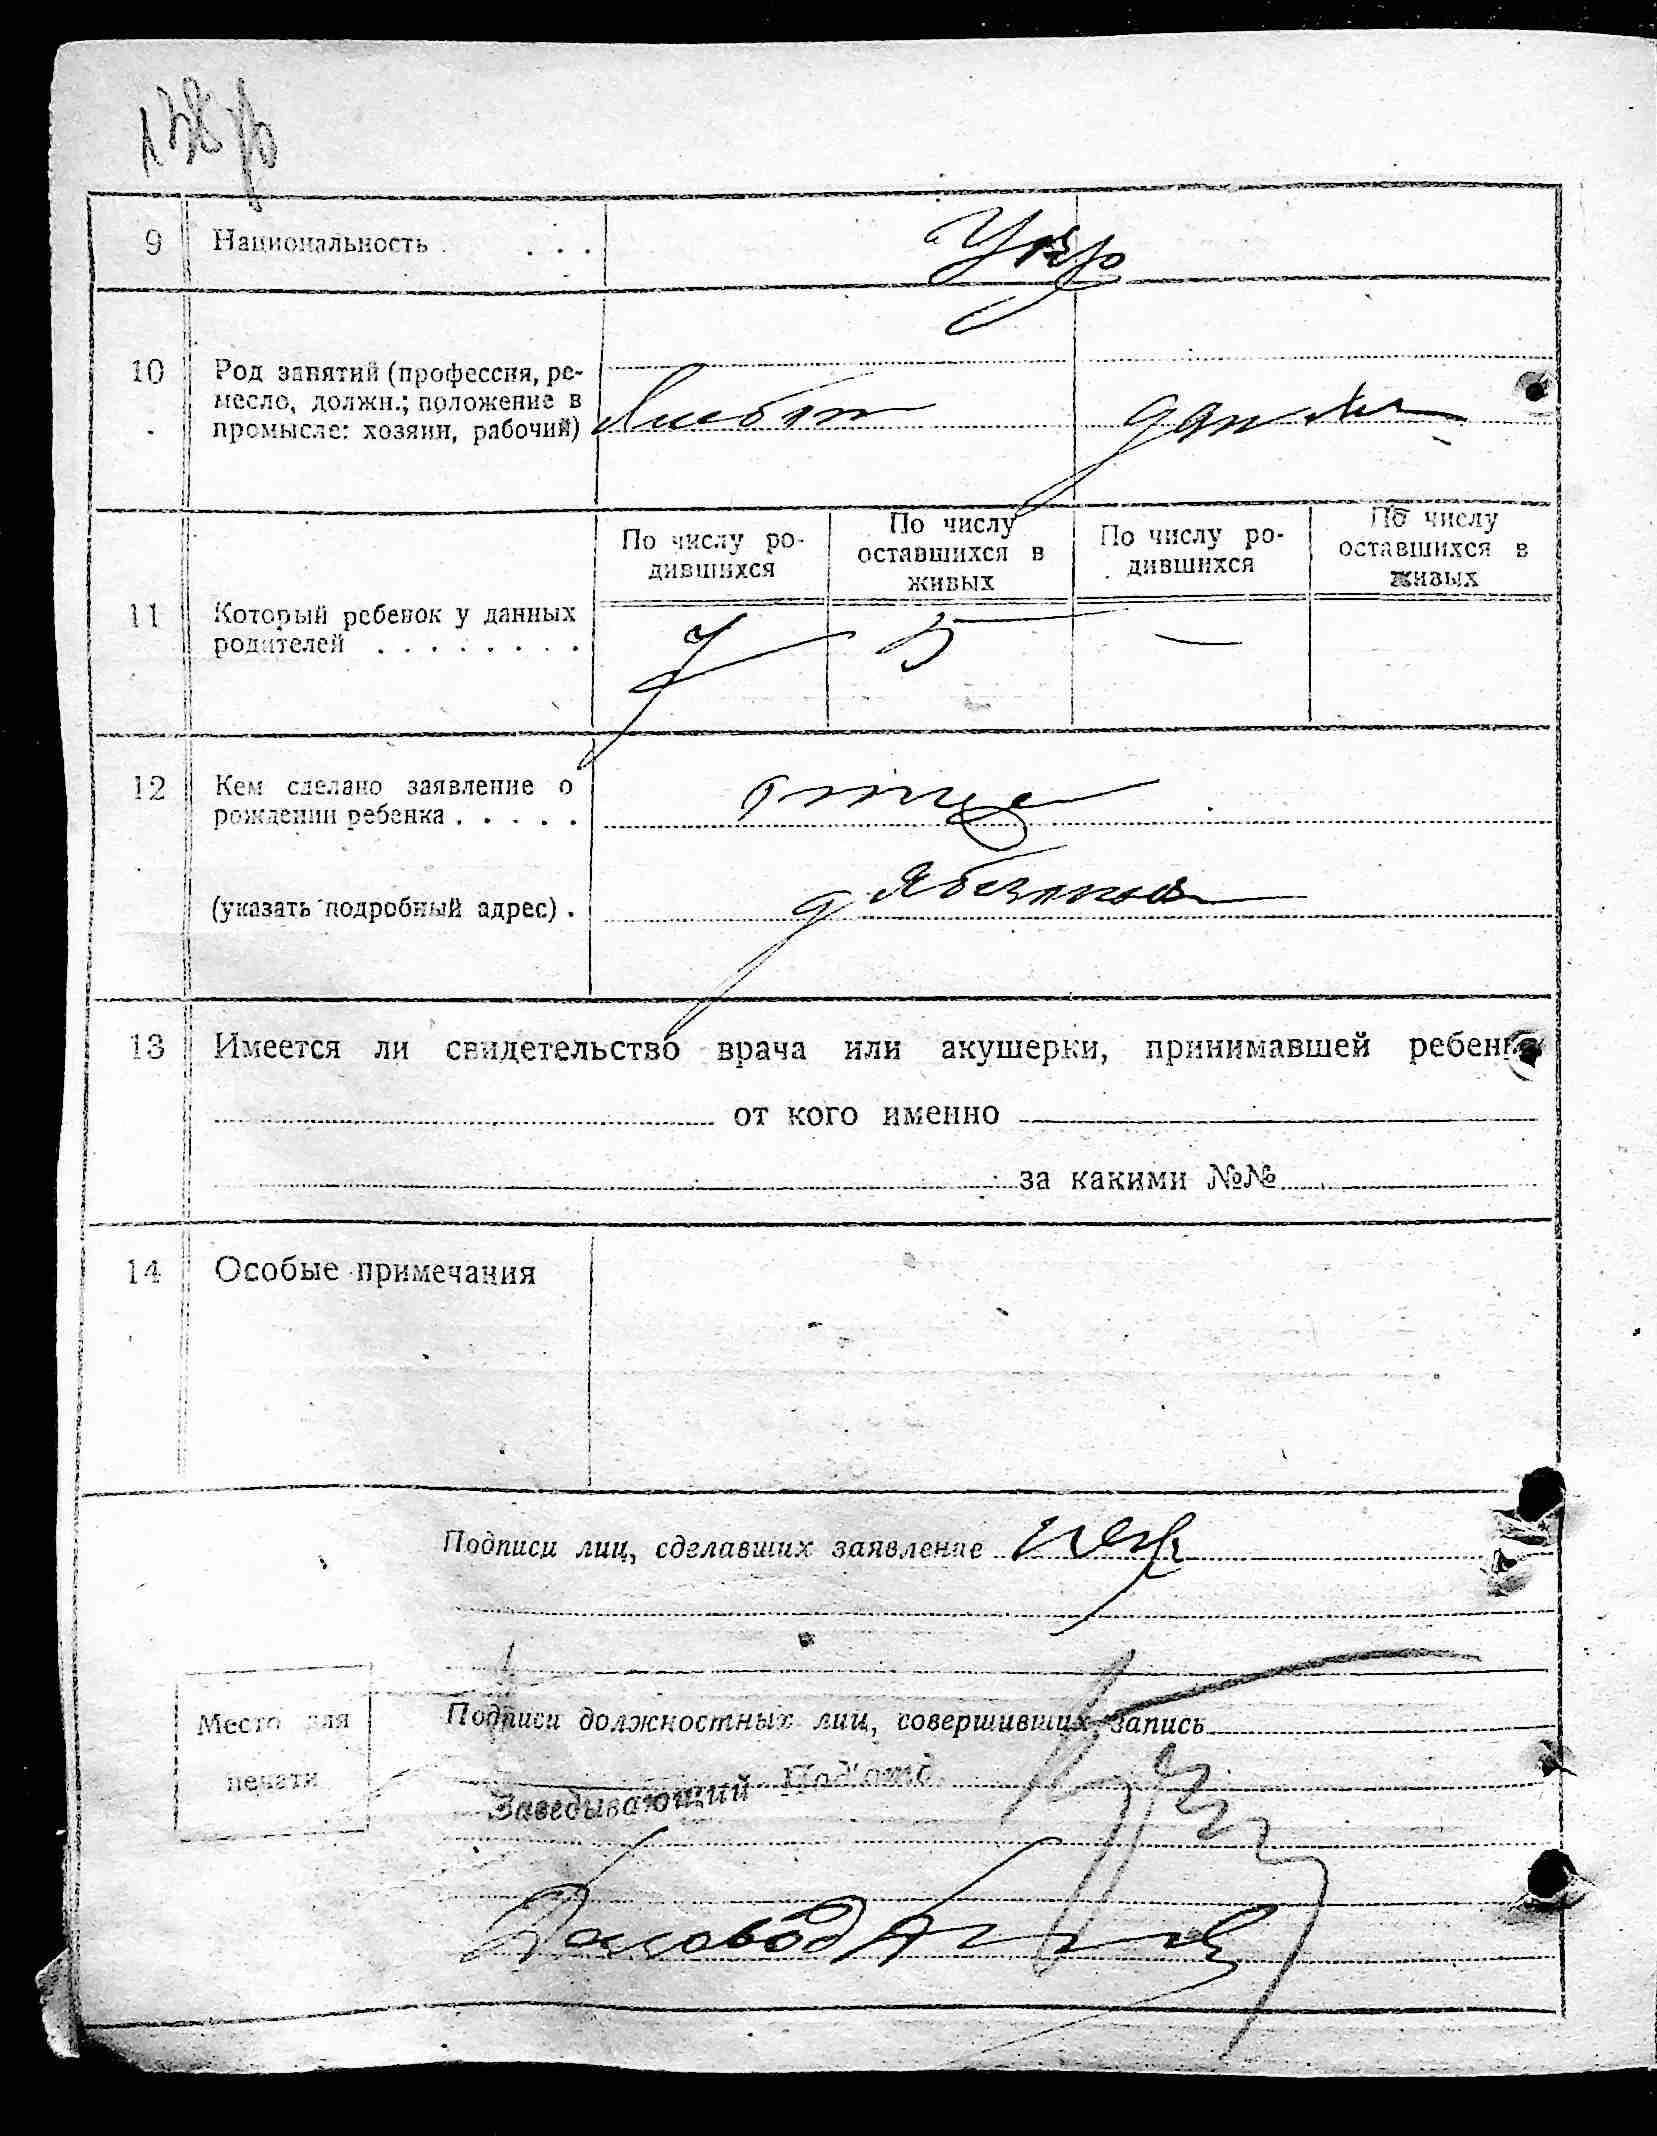 9 Национальность . . . .
Укр
10 Род занятий (профессия, ре-
месло, должн.; положение в
промысле: хозяин, рабочий)
Хлебоп
По числу ро-
дившихся
По числу
оставшихся в
живых
По числу ро-
дившихся
По числу
оставшихся в
живых
11 Который ребенок у данных
родителей . . . . . . . .
7 5 —
12 Кем сделано заявление о
рождении ребенка . . . . .
отце
(указать подробный адрес) .
д
13 Имеется ли свидетельство врача или акушерки, принимавшей ребенка
от кого именно
за какими №№
14 Особые примечания
Подписи лиц, сделавших заявление
Место для
печати
Подписи должностных лиц, совершивших запись
Заведывающий Под'отд.
Деловод